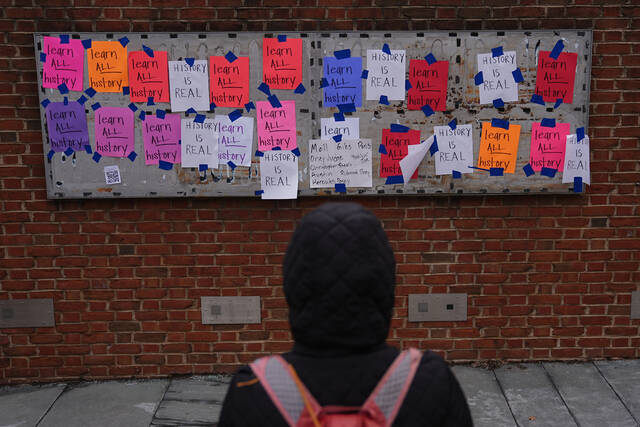 learn
ALL
history
learn
ALL
history
learn
ALL
history
HISTORY
IS
REAL
learn
ALL
history
learn
ALL
history
learn
ALL
history
HISTORY
IS
REAL
learn
ALL
history
HISTORY
IS
REAL
learn
ALL
history
learn
ALL
history
learn
ALL
history
learn
ALL
history
HISTORY
IS
REAL
learn
ALL
history
learn
ALL
history
HISTORY
IS REAL
Moll Giles Paris
Oney Judge
Austin
Hercules
learn
ALL
history
HISTORY
IS
REAL
learn
ALL
history
learn
ALL
history
HISTORY
IS
REAL